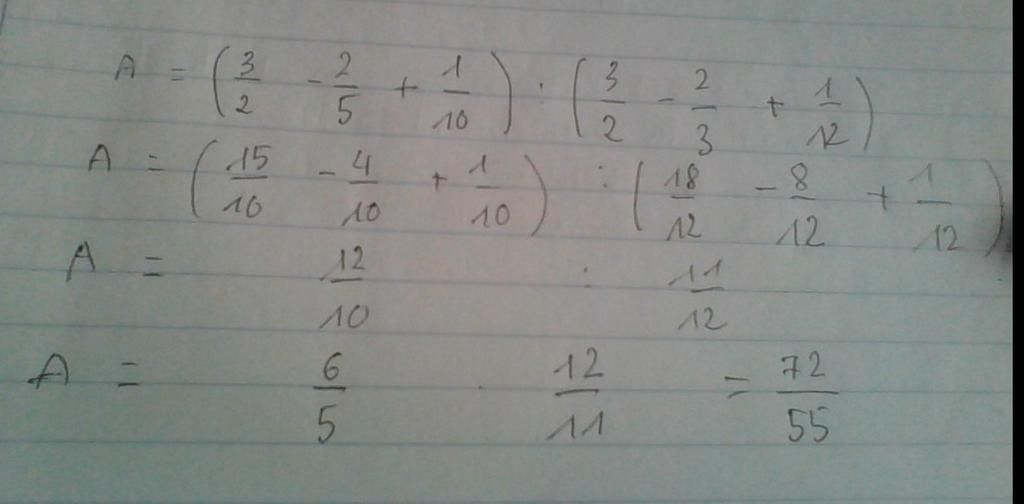 A = (3/2 - 2/5 + 1/10) : (3/2 - 2/3 + 1/12)
A = (15/10 - 4/10 + 1/10) : (18/12 - 8/12 + 1/12)
A = 12/10 : 11/12
A = 6/5 . 12/11 = 72/55